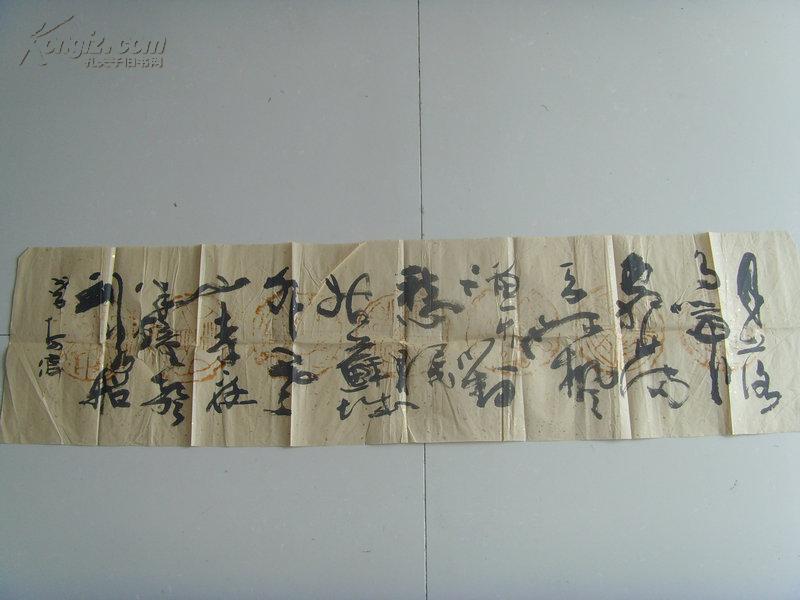 Kongfz.com
孔夫子旧书网
月落
烏啼
霜滿
天江楓
漁火對
愁眠
姑蘇城
外寒
山寺夜
半鐘聲
到客船